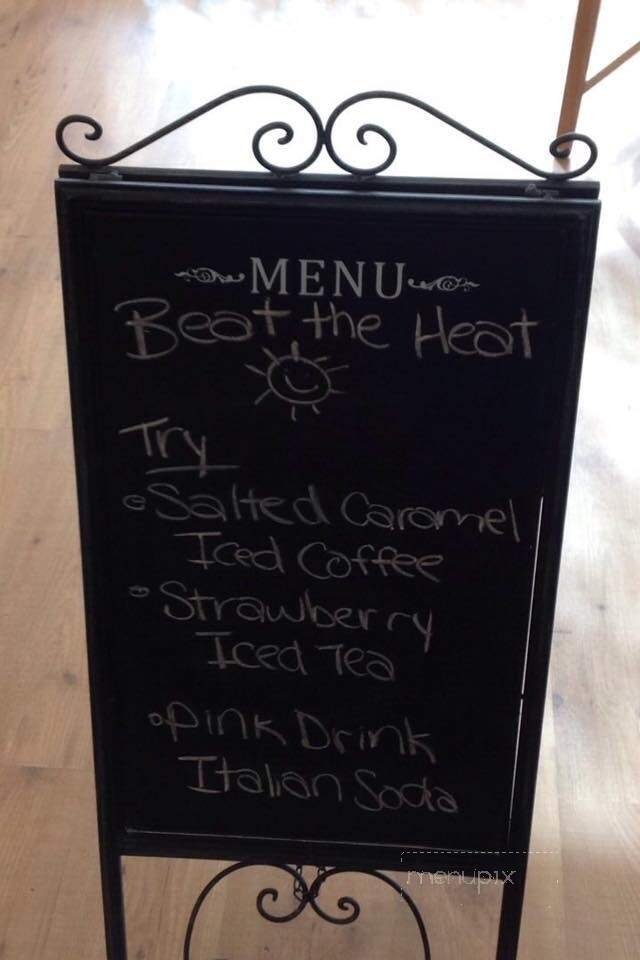 MENU
Beat the Heat
Try
Salted Caramel
Iced Coffee
Strawberry
Iced Tea
Pink Drink
Italian Soda
menupix